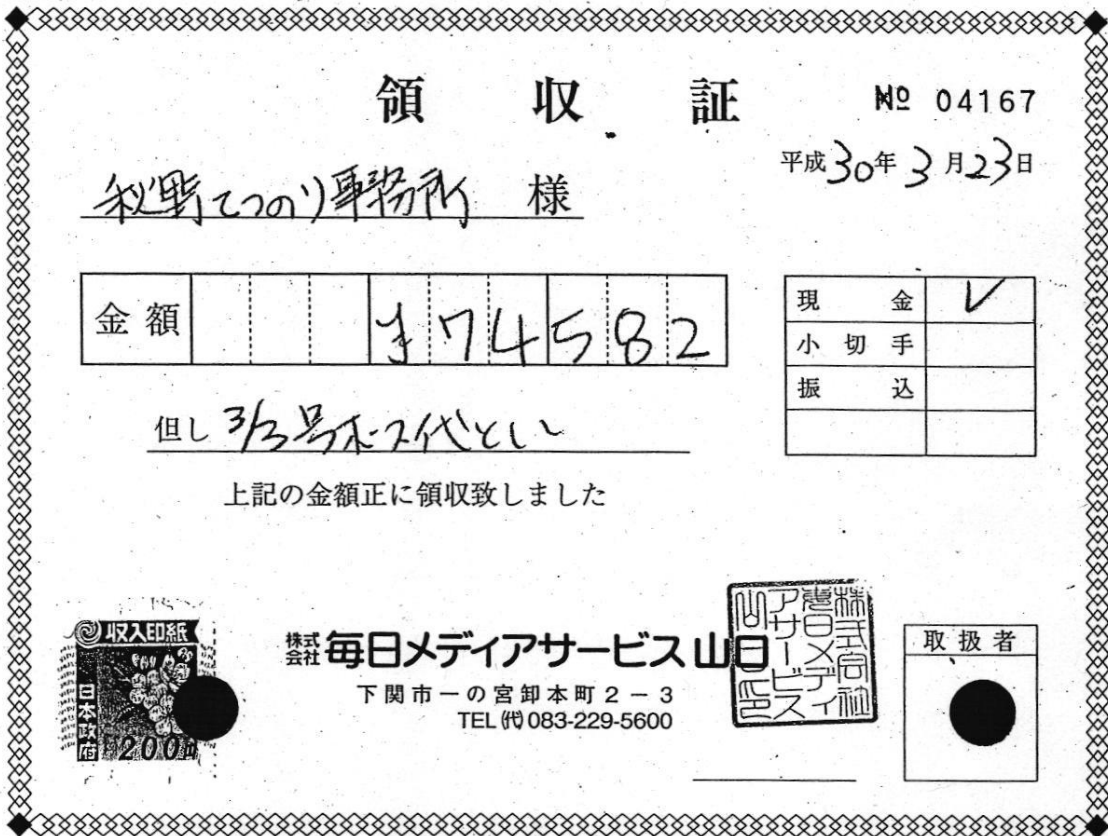 領収証
№ 04167
平成30年3月23日
秋野てつのり事務所 様
金額 ¥74582
現金 ✓
小切手
振込
但し 3/3号ホース代とし
上記の金額正に領収致しました
収入印紙
日本政府
200円
株式会社 毎日メディアサービス山口
下関市一の宮卸本町2-3
TEL(代)083-229-5600
株式会社毎日メディアサービス山口之印
取扱者